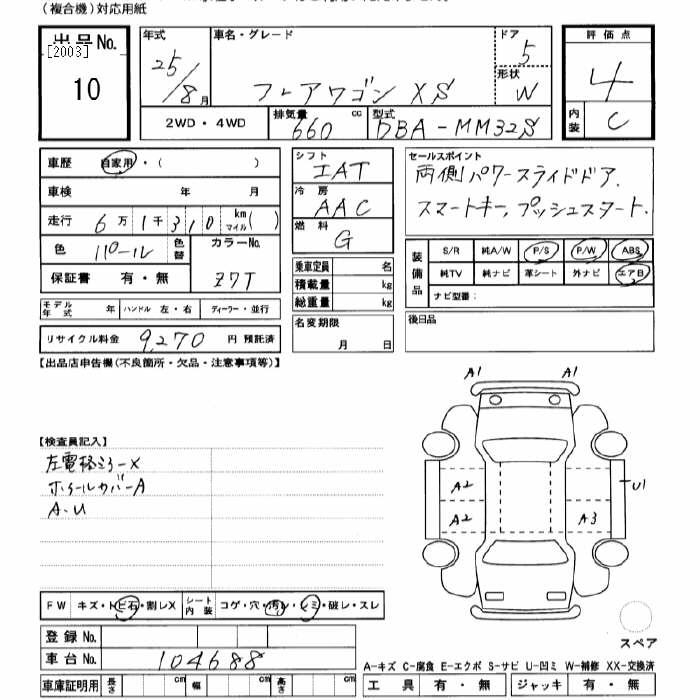 (複合機)対応用紙
出品No.
[2003]
10
年式
25/8月
車名・グレード
フレアワゴン XS
ドア
5
形状
W
評価点
4
内装
C
2WD・4WD
排気量 660 cc
型式 DBA-MM32S
車歴 自家用・( )
車検 年 月
走行 6万1千310 km マイル( )
色 パール 色替
カラーNo.
Z7T
保証書 有・無
モデル年式 年 ハンドル 左・右 ディーラー・並行
リサイクル料金 9,270 円 預託済
シフト
IAT
冷房
AAC
燃料
G
乗車定員 名
積載量 kg
総重量 kg
名変期限
月 日
セールスポイント
両側パワースライドドア.
スマートキー, プッシュスタート.
装備品
S/R 純A/W P/S P/W ABS
純TV 純ナビ 革シート 外ナビ エアB
ナビ型番:
後日品
【出品店申告欄(不良箇所・欠品・注意事項等)】
【検査員記入】
左電格ミラーX
ホイールカバーA
A・U
A1 A1
A2
A2 A3
U1
スペア
FW キズ・トビ石・割レX シート内装 コゲ・穴・汚レ・シミ・破レ・スレ
登録No.
車台No. 104688
車庫証明用 長さ cm 幅 cm 高さ cm
A-キズ C-腐食 E-エクボ S-サビ U-凹ミ W-補修 XX-交換済
工具 有・無 ジャッキ 有・無